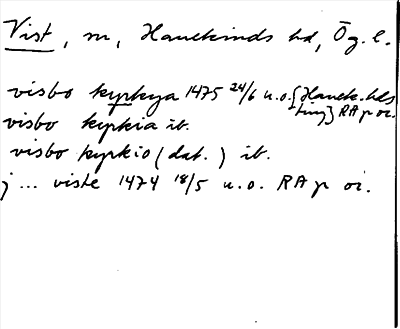 Vist, sn, Hanekinds hd, Ög. l.
visbo kyrkya 1475 24/6 u.o. {Hanek. hds
ting} RA p or.
visbo kyrkia ib.
visbo kyrkio (dat.) ib.
j ... viste 1474 18/5 u.o. RA p or.